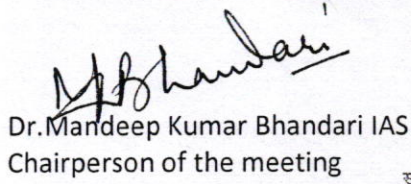 MBhandari
Dr.Mandeep Kumar Bhandari IAS
Chairperson of the meeting